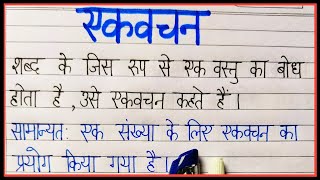 एकवचन
शब्द के जिस रूप से एक वस्तु का बोध
होता है , उसे एकवचन कहते हैं ।
सामान्यत: एक संख्या के लिए एकवचन का
प्रयोग किया गया है ।